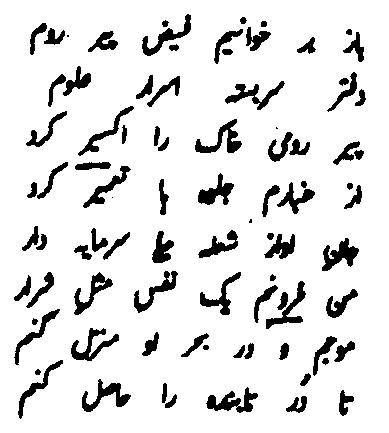 باز بر خوانیم فیض پیر روم
دفتر سربسته اسرار علوم
پیر رومی خاک را اکسیر کرد
از غبارم جلوه ها تعمیر کرد
جان او از شعله ها سرمایه دار
من فروغ یک نفس مثل شرار
موجم و در بحر او منزل کنم
تا در تابنده را حاصل کنم